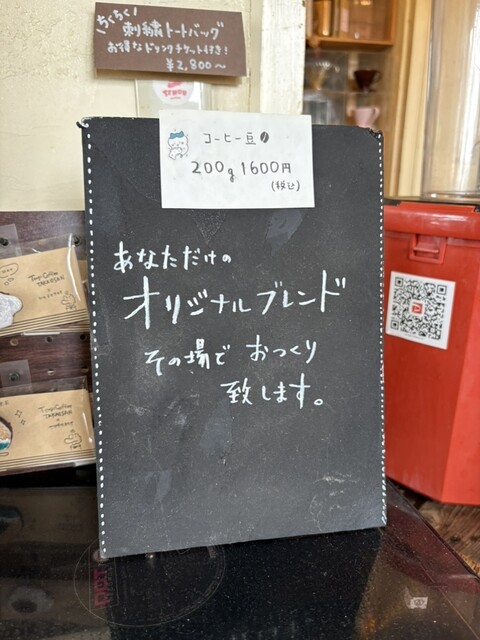 ちくちく!
刺繍トートバッグ
お得なドリンクチケット付き!
¥2,800〜
コーヒー豆
200g 1600円
(税込)
あなただけの
オリジナルブレンド
その場で おつくり
致します。